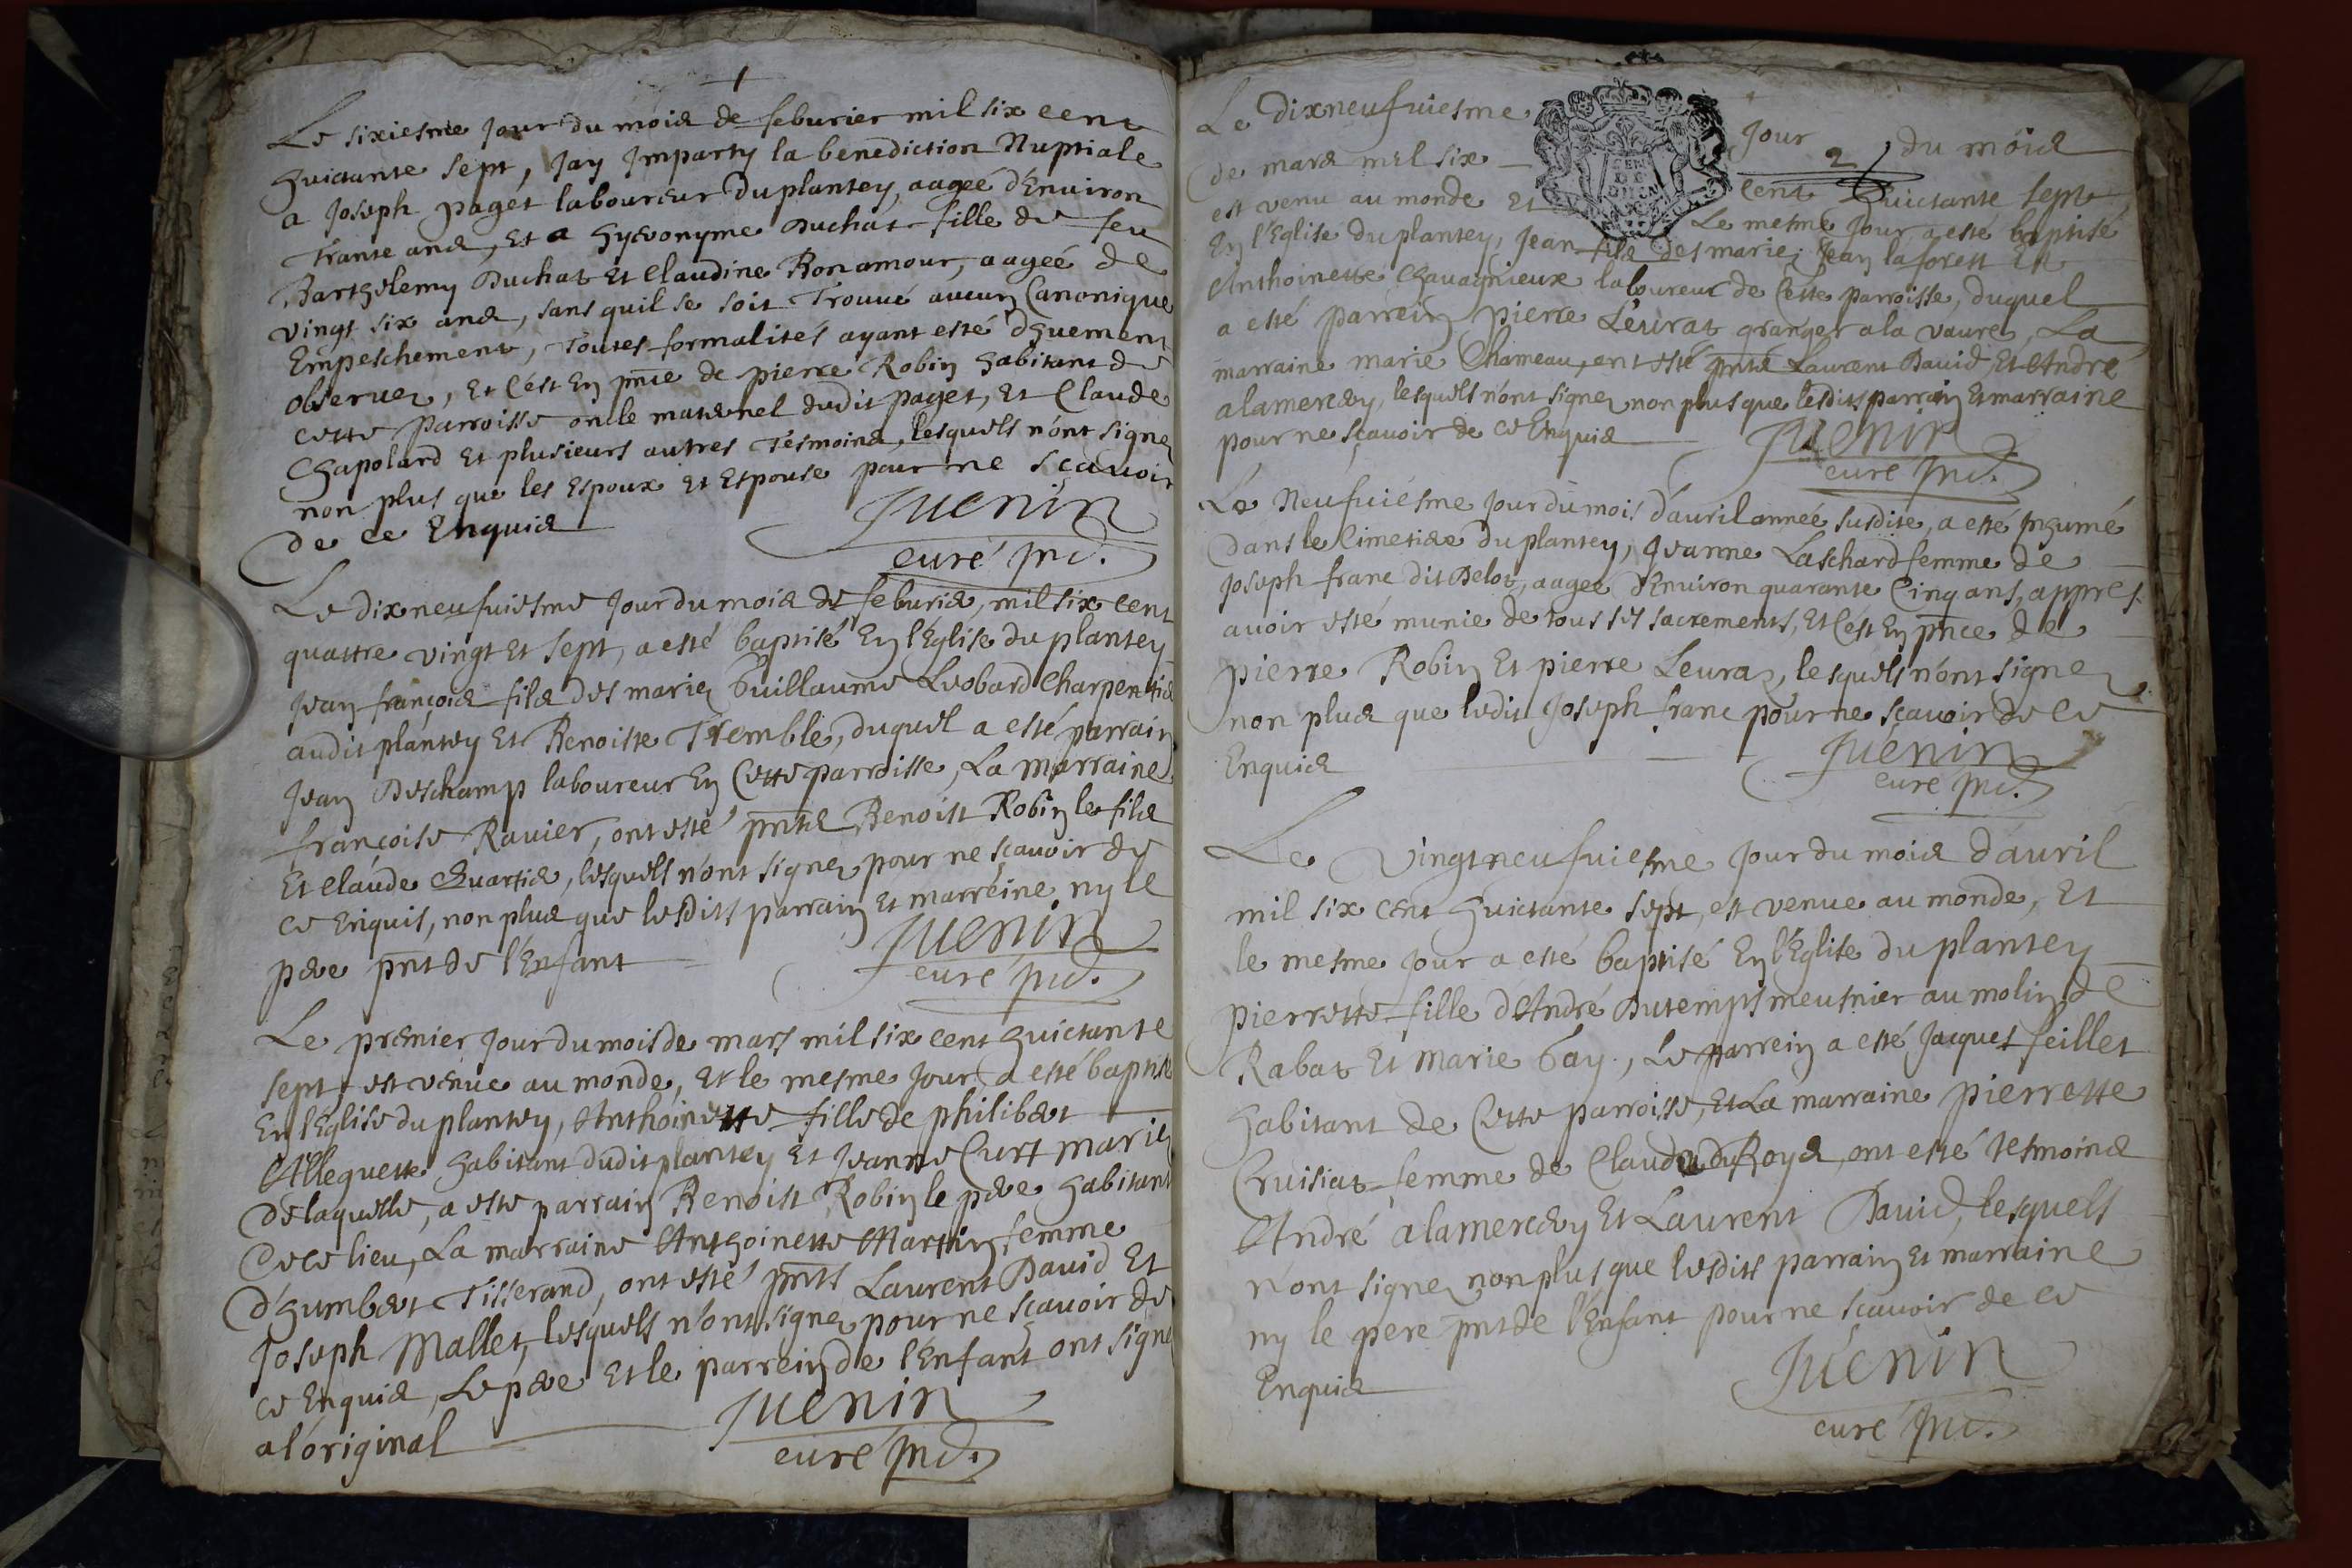 Le sixiesme jour du mois de feburier mil six cent
huictante sept, jay jmparty la benediction Nuptiale
a joseph paget laboureur du plantey, aagee d'Enuiron
trante ans, et a hyeronyme Duchat fille de feu
Barthelemy Duchat et Claudine Bonamour, aagée de
vingt six ans, sans quil se soit trouué aucun Canonique
Empeschement, toutes formalités ayant esté dhuement
obseruez, Et c'est En pnce de pierre Robin habitant de
cette parroisse oncle maternel dudit paget, et Claude
Chapolard et plusieurs autres tesmoins, lesquels n'ont signez
non plus que les Espoux et Espouse pour ne sçauoir
de ce Enquis
Juenin
curé jnd.
Le dixneufuiesme jour du mois de feburier, mil six cent
quattre vingt et sept, a esté baptisé En l'Eglise du plantey
jean françois fils des mariez Guillaume Leobard Charpentier
audit plantey et Benoiste Tremble, duquel a esté parrain
jean Deschamp laboureur En Cette parroisse, La marraine
françoise Rauier, ont esté pnts Benoist Robin le fils
Et claude Quartier, lesquels n'ont signez pour ne sçauoir de
ce Enquis, non plus que lesdits parrain et marreine ny le
pere pnt de l'Enfant
Juenin
curé jnd.
Le premier jour du mois de mars mil six cent huictante
sept est venue au monde, et le mesme jour a esté baptisé
En l'Eglise du plantey, Anthoinette fille de philibert
Alleguette habitant dudit plantey et jeanne Curt mariez
delaquelle, a este parrain Benoist Robin le pere habitant
de ce lieu, La marraine Anthoinette Martin femme
d'humbert Tisserand, ont esté pnts Laurent Dauid et
joseph Mallet, lesquels n'ont signez pour ne sçauoir de
ce Enquis, Le pere et le parrein de l'Enfant ont signe
a l'original
Juenin
curé jnd.
2
Le dixneufuiesme jour du mois
de mars mil six cent huictante sept
est venu au monde et Le mesme jour a esté baptisé
En l'Eglise du plantey, jean fils des mariez jean laforest et
Anthoinette Chauagnieux laboureur de Cette parroisse, duquel
a esté parrein pierre Leurat granger a la vaure, La
marraine marie Chameau, ont esté pnts Laurent Dauid et André
alamercery, lesquels n'ont signez non plus que lesdits parrain et marraine
pour ne sçauoir de ce Enquis
Juenin
curé jnd.
Le Neufuiesme jour du mois d'auril année susdite, a esté jnhumé
dans le Cimetiere du plantey, jeanne Laschard femme de
joseph franc dit Delot, aagee d'Enuiron quarante Cinq ans, appres
auoir esté munie de tous ses sacrements, et c'est En pnce de
pierre Robin et pierre Leuraz, lesquels n'ont signez
non plus que ledit joseph franc pour ne sçauoir de ce
Enquis
Juenin
curé jnd.
Le vingtneufuiesme jour du mois d'auril
mil six cent huictante sept, est venue au monde, et
le mesme jour a esté baptisé En l'Eglise du plantey
pierrette fille d'André Dutemps meusnier au molin de
Rabat et marie Gay, Le parrein a esté jacques feillet
habitant de Cette parroisse, et La marraine pierrette
Cruisiat femme de Claude du Roys, ont esté tesmoins
André alamercery et Laurent Dauid, lesquels
n'ont signez non plus que lesdits parrain et marraine
ny le pere pnt de l'Enfant pour ne scauoir de ce
Enquis
Juenin
curé jnd.